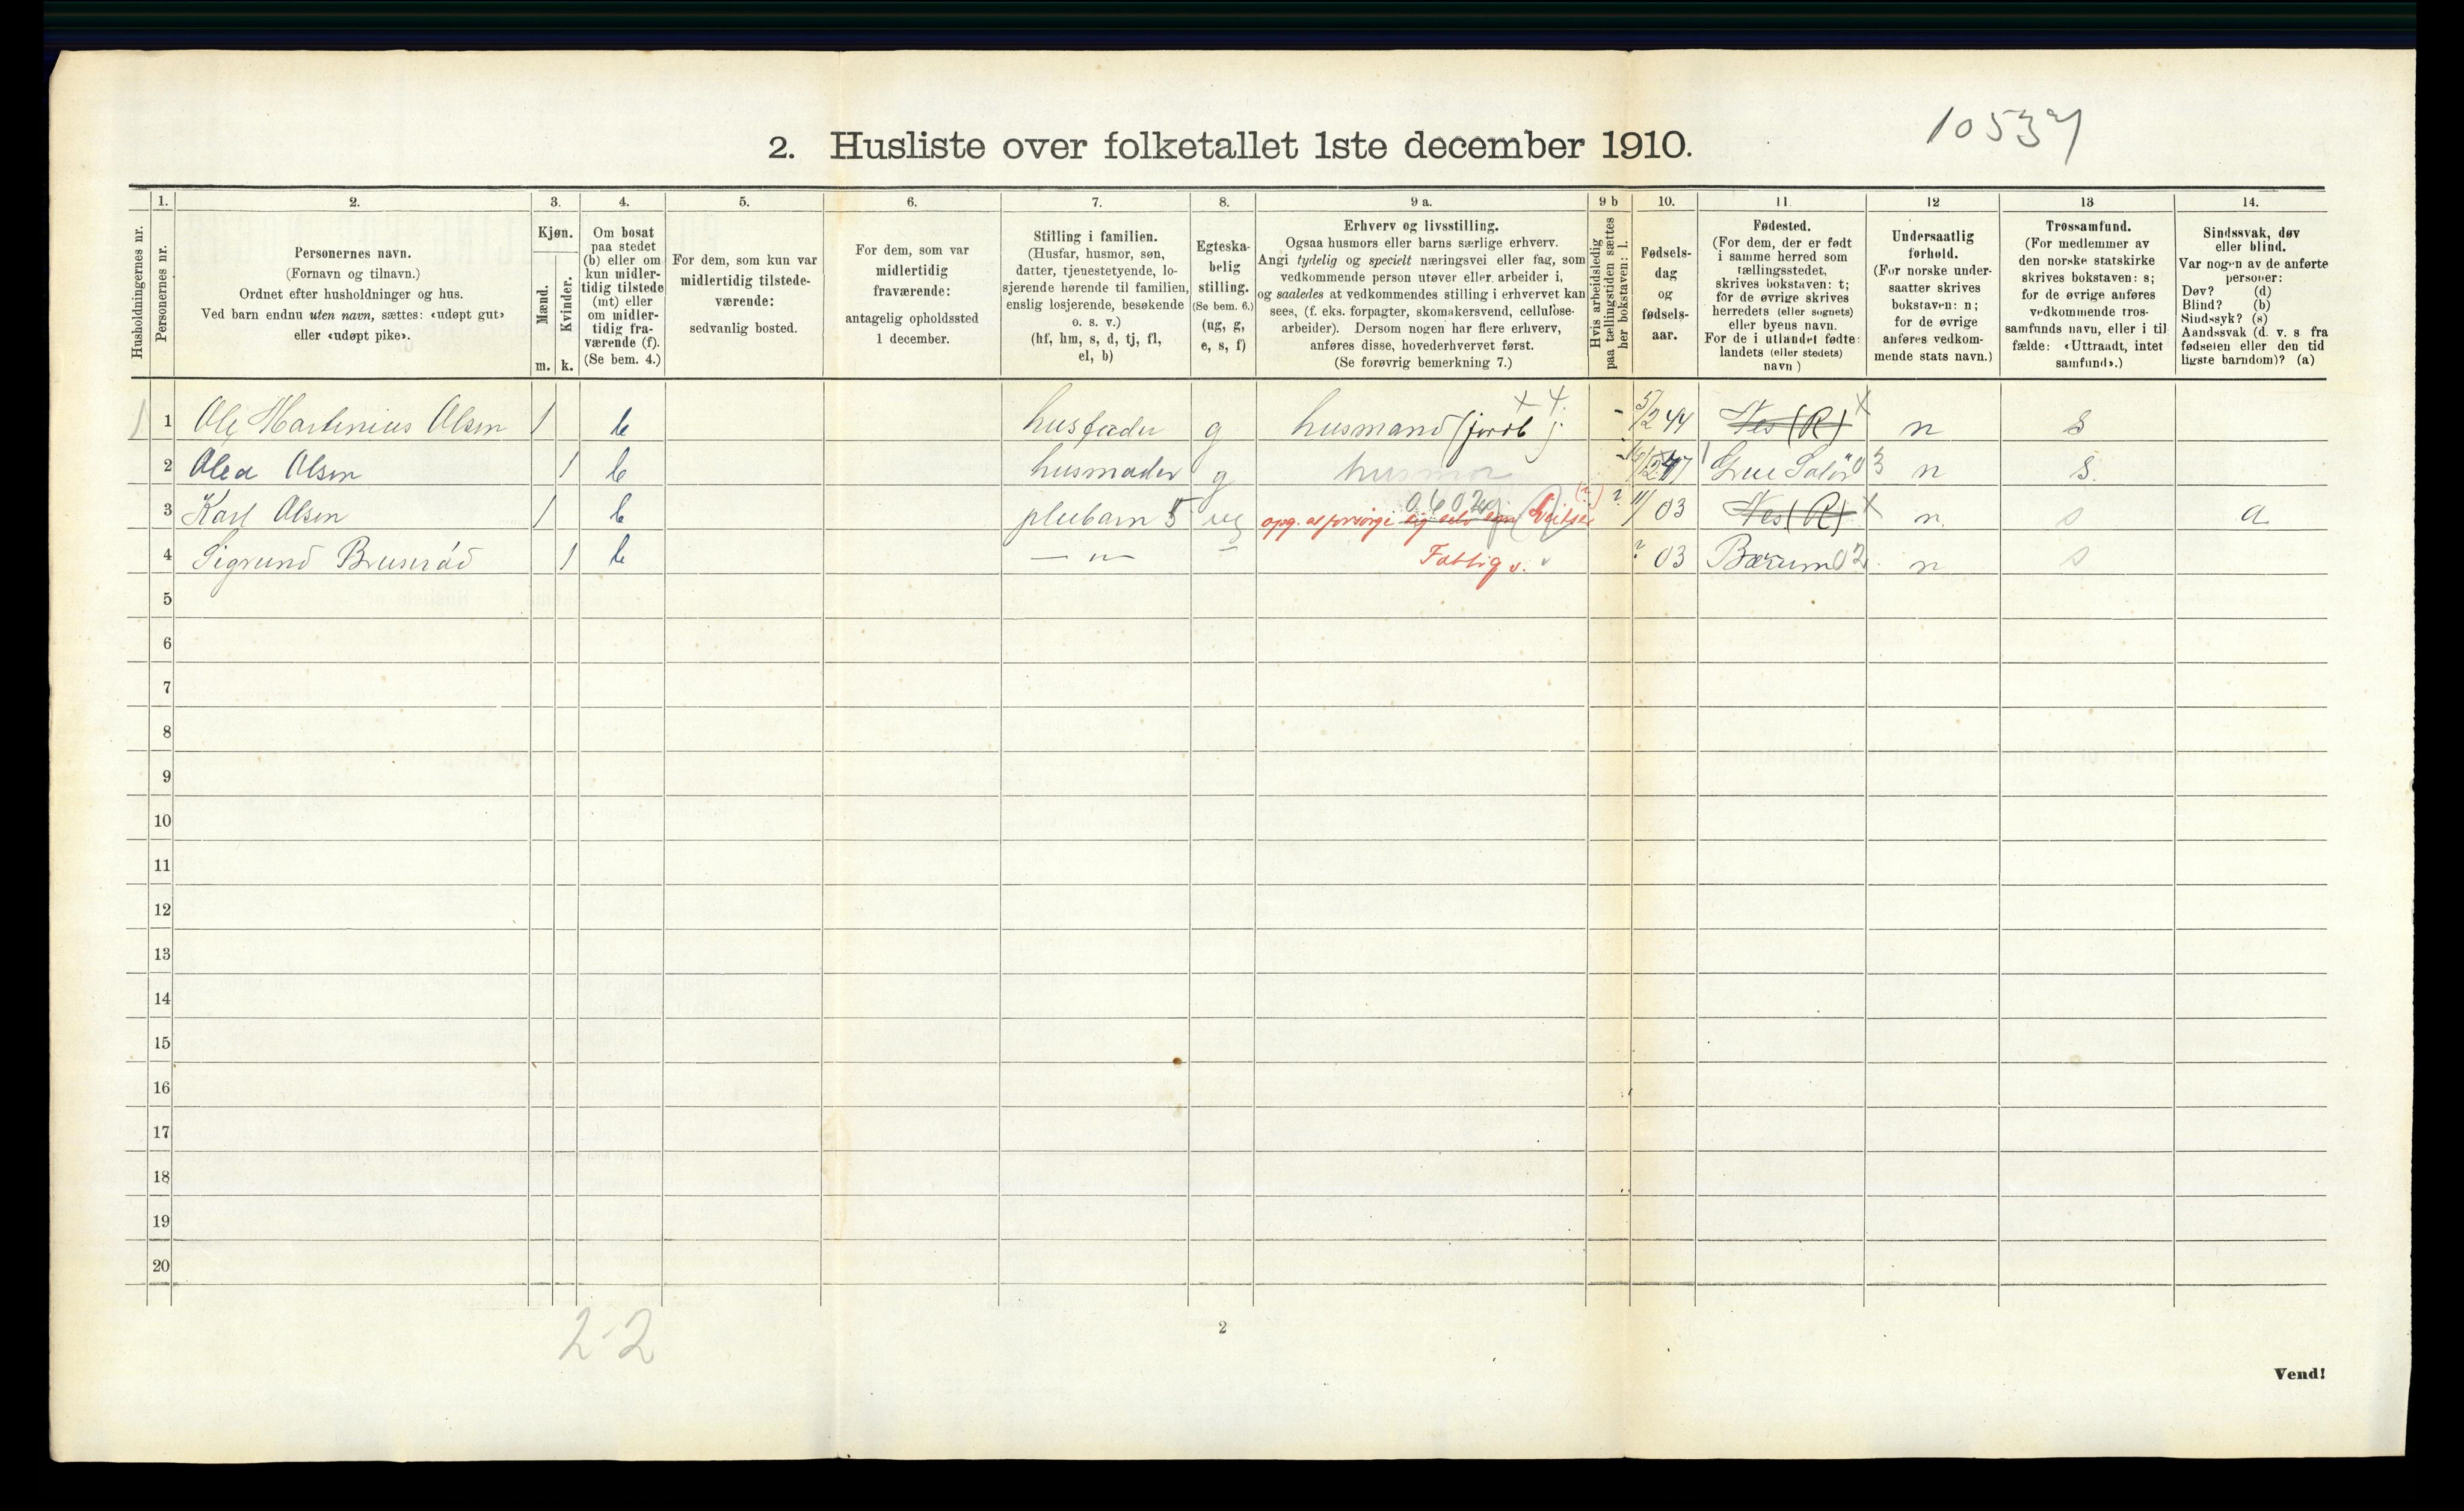 10537
2. Husliste over folketallet 1ste december 1910.
Husholdningernes nr.
1.
Personernes nr.
2.
Personernes navn.
(Fornavn og tilnavn.)
Ordnet efter husholdninger og hus.
Ved barn endnu uten navn, sættes: «udøpt gut»
eller «udøpt pike».
3.
Kjøn.
Mænd.
Kvinder.
m. k.
4.
Om bosat
paa stedet
(b) eller om
kun midler-
tidig tilstede
(mt) eller
om midler-
tidig fra-
værende (f).
(Se bem. 4.)
5.
For dem, som kun var
midlertidig tilstede-
værende:
sedvanlig bosted.
6.
For dem, som var
midlertidig
fraværende:
antagelig opholdssted
1 december.
7.
Stilling i familien.
(Husfar, husmor, søn,
datter, tjenestetyende, lo-
sjerende hørende til familien,
enslig losjerende, besøkende
o. s. v.)
(hf, hm, s, d, tj, fl,
el, b)
8.
Egteska-
belig
stilling.
(Se bem. 6.)
(ug, g,
e, s, f)
9 a.
Erhverv og livsstilling.
Ogsaa husmors eller barns særlige erhverv.
Angi tydelig og specielt næringsvei eller fag, som
vedkommende person utøver eller arbeider i,
og saaledes at vedkommendes stilling i erhvervet kan
sees, (f. eks. forpagter, skomakersvend, cellulose-
arbeider). Dersom nogen har flere erhverv,
anføres disse, hovederhvervet først.
(Se forøvrig bemerkning 7.)
9 b
Hvis arbeidsledig
paa tællingstiden sættes
her bokstaven: l.
10.
Fødsels-
dag
og
fødsels-
aar.
11.
Fødested.
(For dem, der er født
i samme herred som
tællingsstedet,
skrives bokstaven: t;
for de øvrige skrives
herredets (eller sognets)
eller byens navn.
For de i utlandet fødte:
landets (eller stedets)
navn )
12
Undersaatlig
forhold.
(For norske under-
saatter skrives
bokstaven: n;
for de øvrige
anføres vedkom-
mende stats navn.)
13
Trossamfund.
(For medlemmer av
den norske statskirke
skrives bokstaven: s;
for de øvrige anføres
vedkommende tros-
samfunds navn, eller i til
fælde: «Uttraadt, intet
samfund».)
14.
Sindssvak, døv
eller blind.
Var nogen av de anførte
personer:
Døv? (d)
Blind? (b)
Sindssyk? (s)
Aandssvak (d. v. s fra
fødselen eller den tid
ligste barndom)? (a)
1 1 Ole Martinius Olsen 1 b husfader g husmand (jordb) - 5/2 44 Nes (R) X n s
2 Olea Olsen 1 b husmoder g husmor - Grue Solør 03 n s.
3 Karl Olsen 1 b pleibarn 5 ug 0602 opg. at forsørge sig selv ? 11/ 03 Nes (R) X n. s a
4 Sigrund Bruserød 1 b — " — - Fattig v. ? 03 Bærum 02. n s
5
6
7
8
9
10
11
12
13
14
15
16
17
18
19
20
2-2
2
Vend!